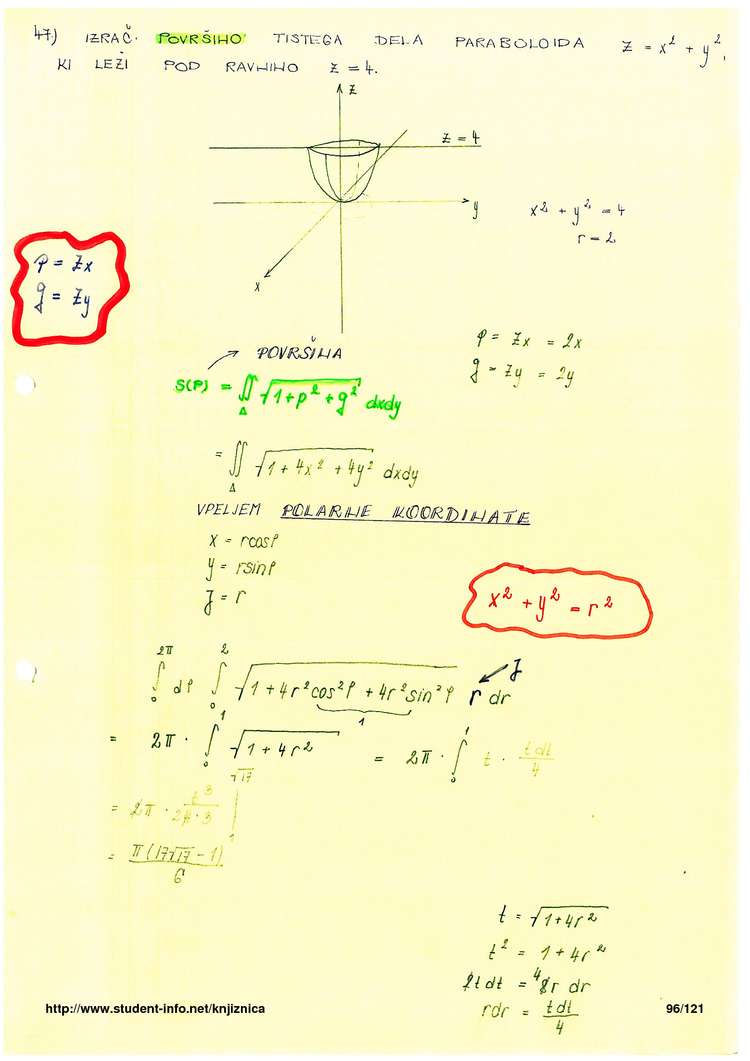 47) IZRAČ. POVRŠINO TISTEGA DELA PARABOLOIDA z = x² + y²,
KI LEŽI POD RAVNINO z = 4.
z
z = 4
y
x
x² + y² = 4
r = 2
p = zx
q = zy
p = zx = 2x
q = zy = 2y
POVRŠINA
S(P) = ∬Δ √(1+p²+q²) dxdy
= ∬Δ √(1 + 4x² + 4y²) dxdy
VPELJEM POLARNE KOORDINATE
x = rcosφ
y = rsinφ
J = r
x² + y² = r²
∫₀^2π dφ ∫₀^2 √(1 + 4r²cos²φ + 4r²sin²φ) r dr
J
1
= 2π · ∫₀^1 √(1 + 4r²) = 2π · ∫₀^1 t · tdt/4
= 2π · t³/(2 4·3) |₁^√17
= π(17√17 - 1)/6
t = √(1+4r²)
t² = 1 + 4r²
2tdt = 4 8r dr
rdr = tdt/4
http://www.student-info.net/knjiznica
96/121